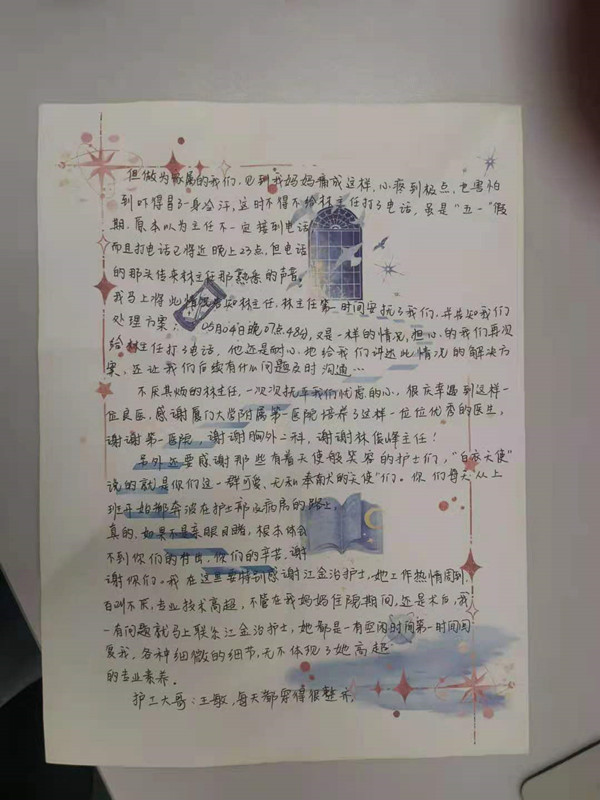 但做为家属的我们,见到我妈妈痛成这样,心疼到极点,也害怕
到吓得冒了一身冷汗,这时不得不给林主任打了电话,虽是“五一”假
期,原本以为主任不一定接到电话
而且打电话已将近晚上23点,但电话
的那头传来林主任那熟悉的声音。
我马上将此情况告知林主任,林主任第一时间安抚了我们,并告知我们
处理方案; 05月04日晚07点48分,又是一样的情况,担心的我们再次
给林主任打了电话,他还是耐心地给我们讲述此情况的解决方
案,还让我们后续有什么问题及时沟通…
不厌其烦的林主任,一次次抚平我们忧虑的心,很庆幸遇到这样一
位良医,感谢厦门大学附属第一医院培养了这样一位位优秀的医生,
谢谢第一医院,谢谢胸外二科,谢谢林俊峰主任!
另外还要感谢那些有着天使般笑容的护士们,“白衣天使”
说的就是你们这一群可爱、无私奉献的天使“们。你们每天从上
班开始都奔波在护士部及病房的路上,
真的,如果不是亲眼目睹,根本体会
不到你们的付出,你们的辛苦,谢
谢你们。我在这里要特别感谢江金治护士,她工作热情周到,
百问不厌,专业技术高超,不管在我妈妈住院期间,还是术后,我
一有问题就马上联系江金治护士,她都是一有空闲时间第一时间回
复我,各种细微的细节,无不体现了她高超
的专业素养。
护工大哥:王敏,每天都穿得很整齐,